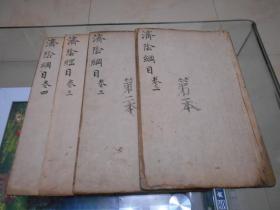 濟陰綱目卷一
第一本
濟陰綱目卷二
第二本
濟陰綱目卷三
濟陰綱目卷四